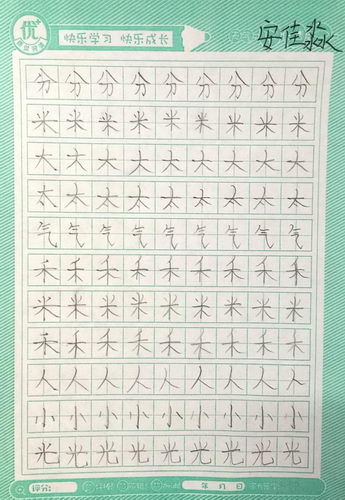 优
快乐学习 快乐成长
安佳淼
分分分分分分分分分
米米米米米米米米米
大大大大大大大大大
太太太太太太太太太
气气气气气气气气气
禾禾禾禾禾禾禾禾禾
米米米米米米米米米
禾禾禾禾禾禾禾禾禾
人人人人人人人人人
小小小小小小小小小
光光光光光光光光光
评分: 年 月 日